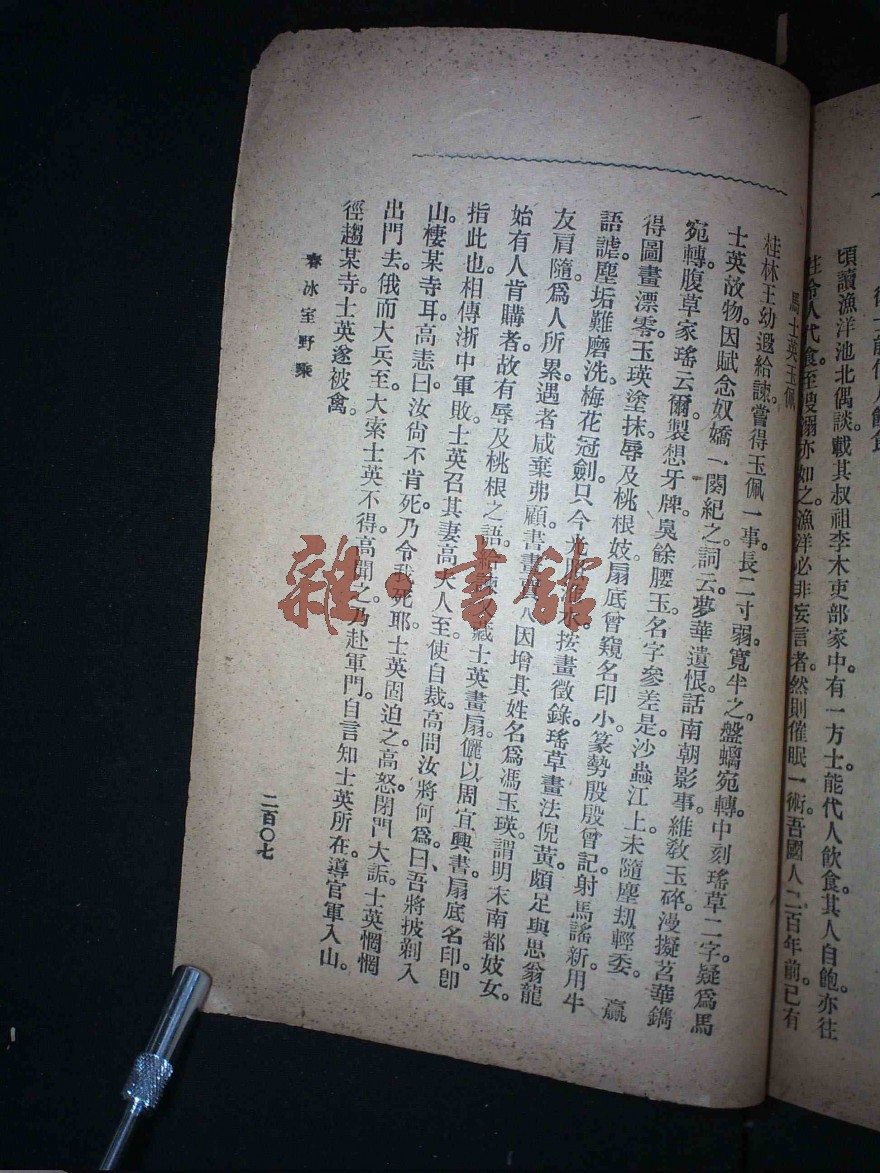 頃讀漁洋池北偶談載其叔祖李木吏部家中有一方士能代人飲食。其人自飽亦往
往令人代食。至溲溺亦如之漁洋必非妄言者。然則催眠一術吾國人二百年前已有
馬士英玉佩
桂林王幼遐給諫嘗得玉佩一事。長二寸弱寬半之。盤螭宛轉。中刻瑤草二字。疑爲馬
士英故物。因賦念奴嬌一闋紀之。詞云。夢華遺恨。話南朝影事。維敎玉碎。漫擬苕華鐫
宛轉。腹草家瑤云爾製。想牙牌。臭餘腰玉。名字參差是。沙蟲江上。未隨塵刼輕委。 贏
得圖畫漂零。玉瑛塗抹。辱及桃根妓。扇底曾窺名印小。篆勢殷殷曾記。射馬謠新。用牛
語謔。塵垢難磨洗。梅花冠劍。只今光照淮水。按畫徵錄。瑤草畫法倪黃。頗足與思翁龍
友肩隨。爲人所累。遇者咸棄弗顧。書畫賈人因增其姓名爲馮玉瑛。謂明末南都妓女。
始有人肯購者。故有辱及桃根之語。給諫又藏士英畫扇。儷以周宜興書。扇底名印。卽
指此也。相傳浙中軍敗。士英召其妻高夫人至。使自裁。高問汝將何爲。曰、吾將披剃入
山。棲某寺耳。高恚曰。汝尙不肯死。乃令我死耶。士英固迫之。高怒閉門大詬。士英惘惘
出門去。俄而大兵至。大索士英不得。高聞之。乃赴軍門。自言知士英所在。導官軍入山。
徑趨某寺。士英遂被禽。
春冰室野乘
二百〇七
雜·書館